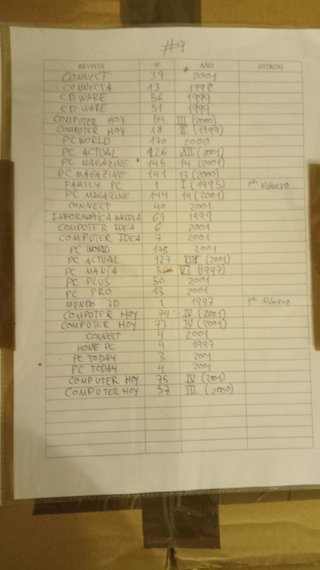 #9
REVISTA Nº AÑO (OTROS)
CONNECT 39 2001
CONNECTA 13 1998
CD WARE 56 1999
CD WARE 51 1999
COMPUTER HOY 54 III (2000)
COMPUTER HOY 18 II (1999)
PC WORLD 170 2000
PC ACTUAL 126 XII (2001)
PC MAGAZINE 145 14 (2001)
PC MAGAZINE 141 13 (2000)
FAMILY PC 1 I (1995) 1er NÚMERO
PC MAGAZINE 144 14 (2001)
CONNECT 40 2001
69 1999
COMPUTER IDEA 6 2001
COMPUTER IDEA 7 2001
PC WORLD 178 2001
PC ACTUAL 127 XIII (2001)
PC MANÍA 56 VI (1997)
PC PLUS 50 2001
PC PRO 13 2001
MUNDO 3D 1 1997 1er NÚMERO
COMPUTER HOY 74 IV (2001)
COMPUTER HOY 73 IV (2001)
CONNECT 4 2001
HOME PC 4 1997
PC TODAY 3 2001
PC TODAY 4 2001
COMPUTER HOY 75 IV (2001)
COMPUTER HOY 57 III (2000)